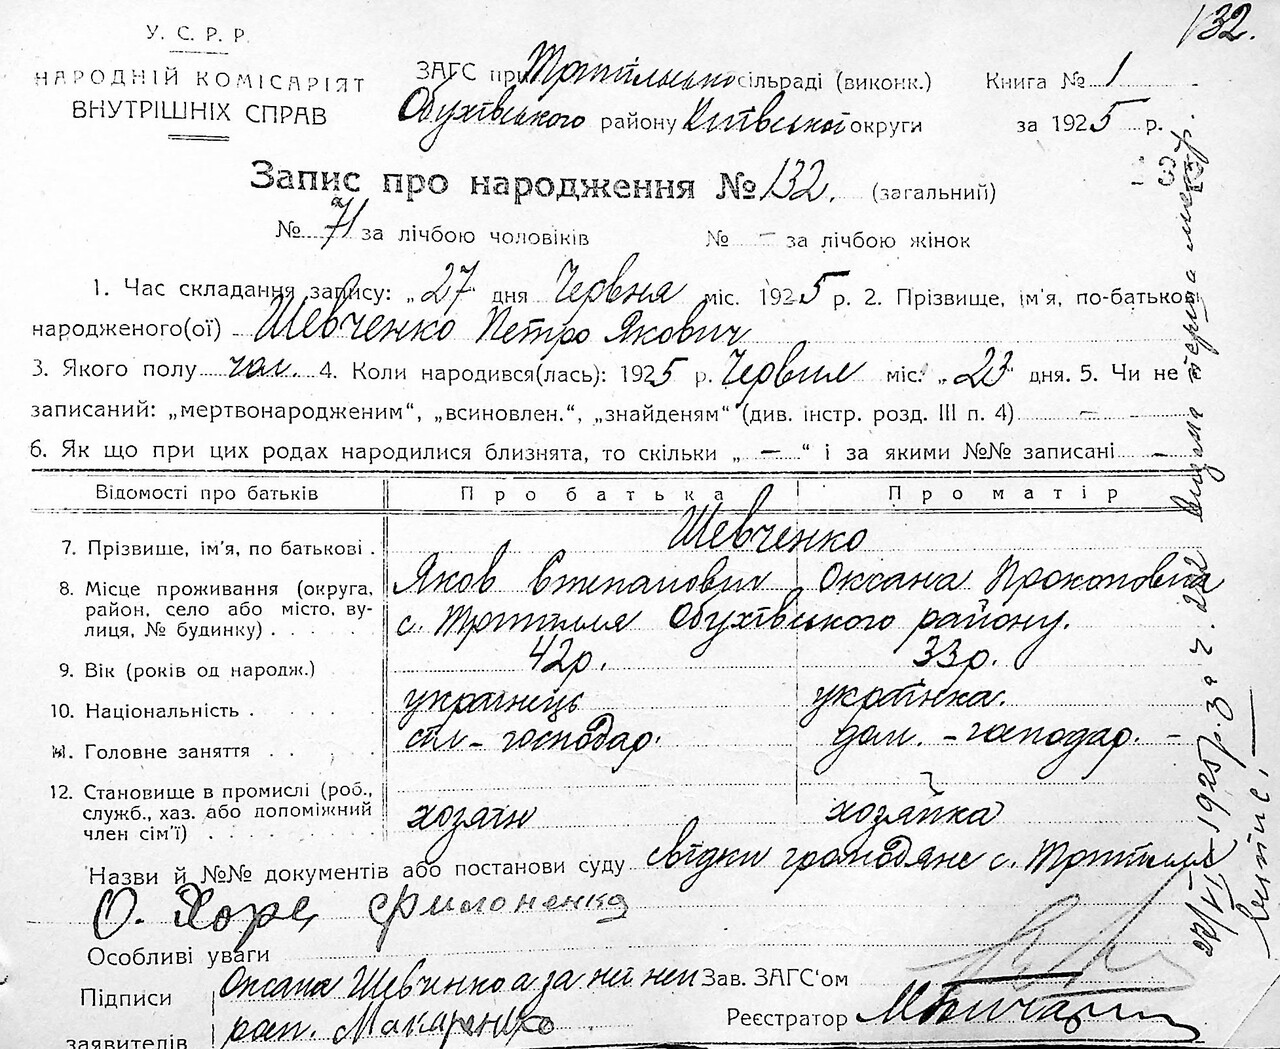 132.
У. С. Р. Р.
НАРОДНІЙ КОМІСАРІЯТ
ВНУТРІШНІХ СПРАВ
ЗАГС при Трипільської сільраді (виконк.)
Обухівського району Київської округи
Книга № 1
за 1925 р.
Запис про народження № 132. (загальний)
№ 71 за лічбою чоловіків № – за лічбою жінок
1. Час складання запису: „27 дня Червня міс. 1925 р. 2. Прізвище, ім'я, по-батькові
народженого(ої) Шевченко Петро Якович
3. Якого полу чол. 4. Коли народився(лась): 1925 р. Червня міс. „23" дня. 5. Чи не
записаний: „мертвонародженим“, „всиновлен.“, „знайденям“ (див. інстр. розд. III п. 4) –
6. Як що при цих родах народилися близнята, то скільки „ – “ і за якими №№ записані –
Відомості про батьків Про батька Про матір
7. Прізвище, ім'я, по батькові . Шевченко
Яков Степанович Оксана Прокоповна
8. Місце проживання (округа, район, село або місто, вулиця, № будинку) с. Трипілля Обухівського району.
9. Вік (років од народж.) 42р. 33р.
10. Національність українець українка.
11. Головне заняття сіл – господар. дом. – господар. –
12. Становище в промислі (роб., служб., хаз. або допоміжний член сім'ї) хозяїн хозяйка
Назви й №№ документів або постанови суду свідки громодяне с. Трипілля
О. Хоре Филоненко
Особливі уваги
Підписи заявителів Оксана Шевченко а за неї неп
рап. Макаренко
Зав. ЗАГС'ом
Реєстратор
27/VI–1925 р. З. ч. 222